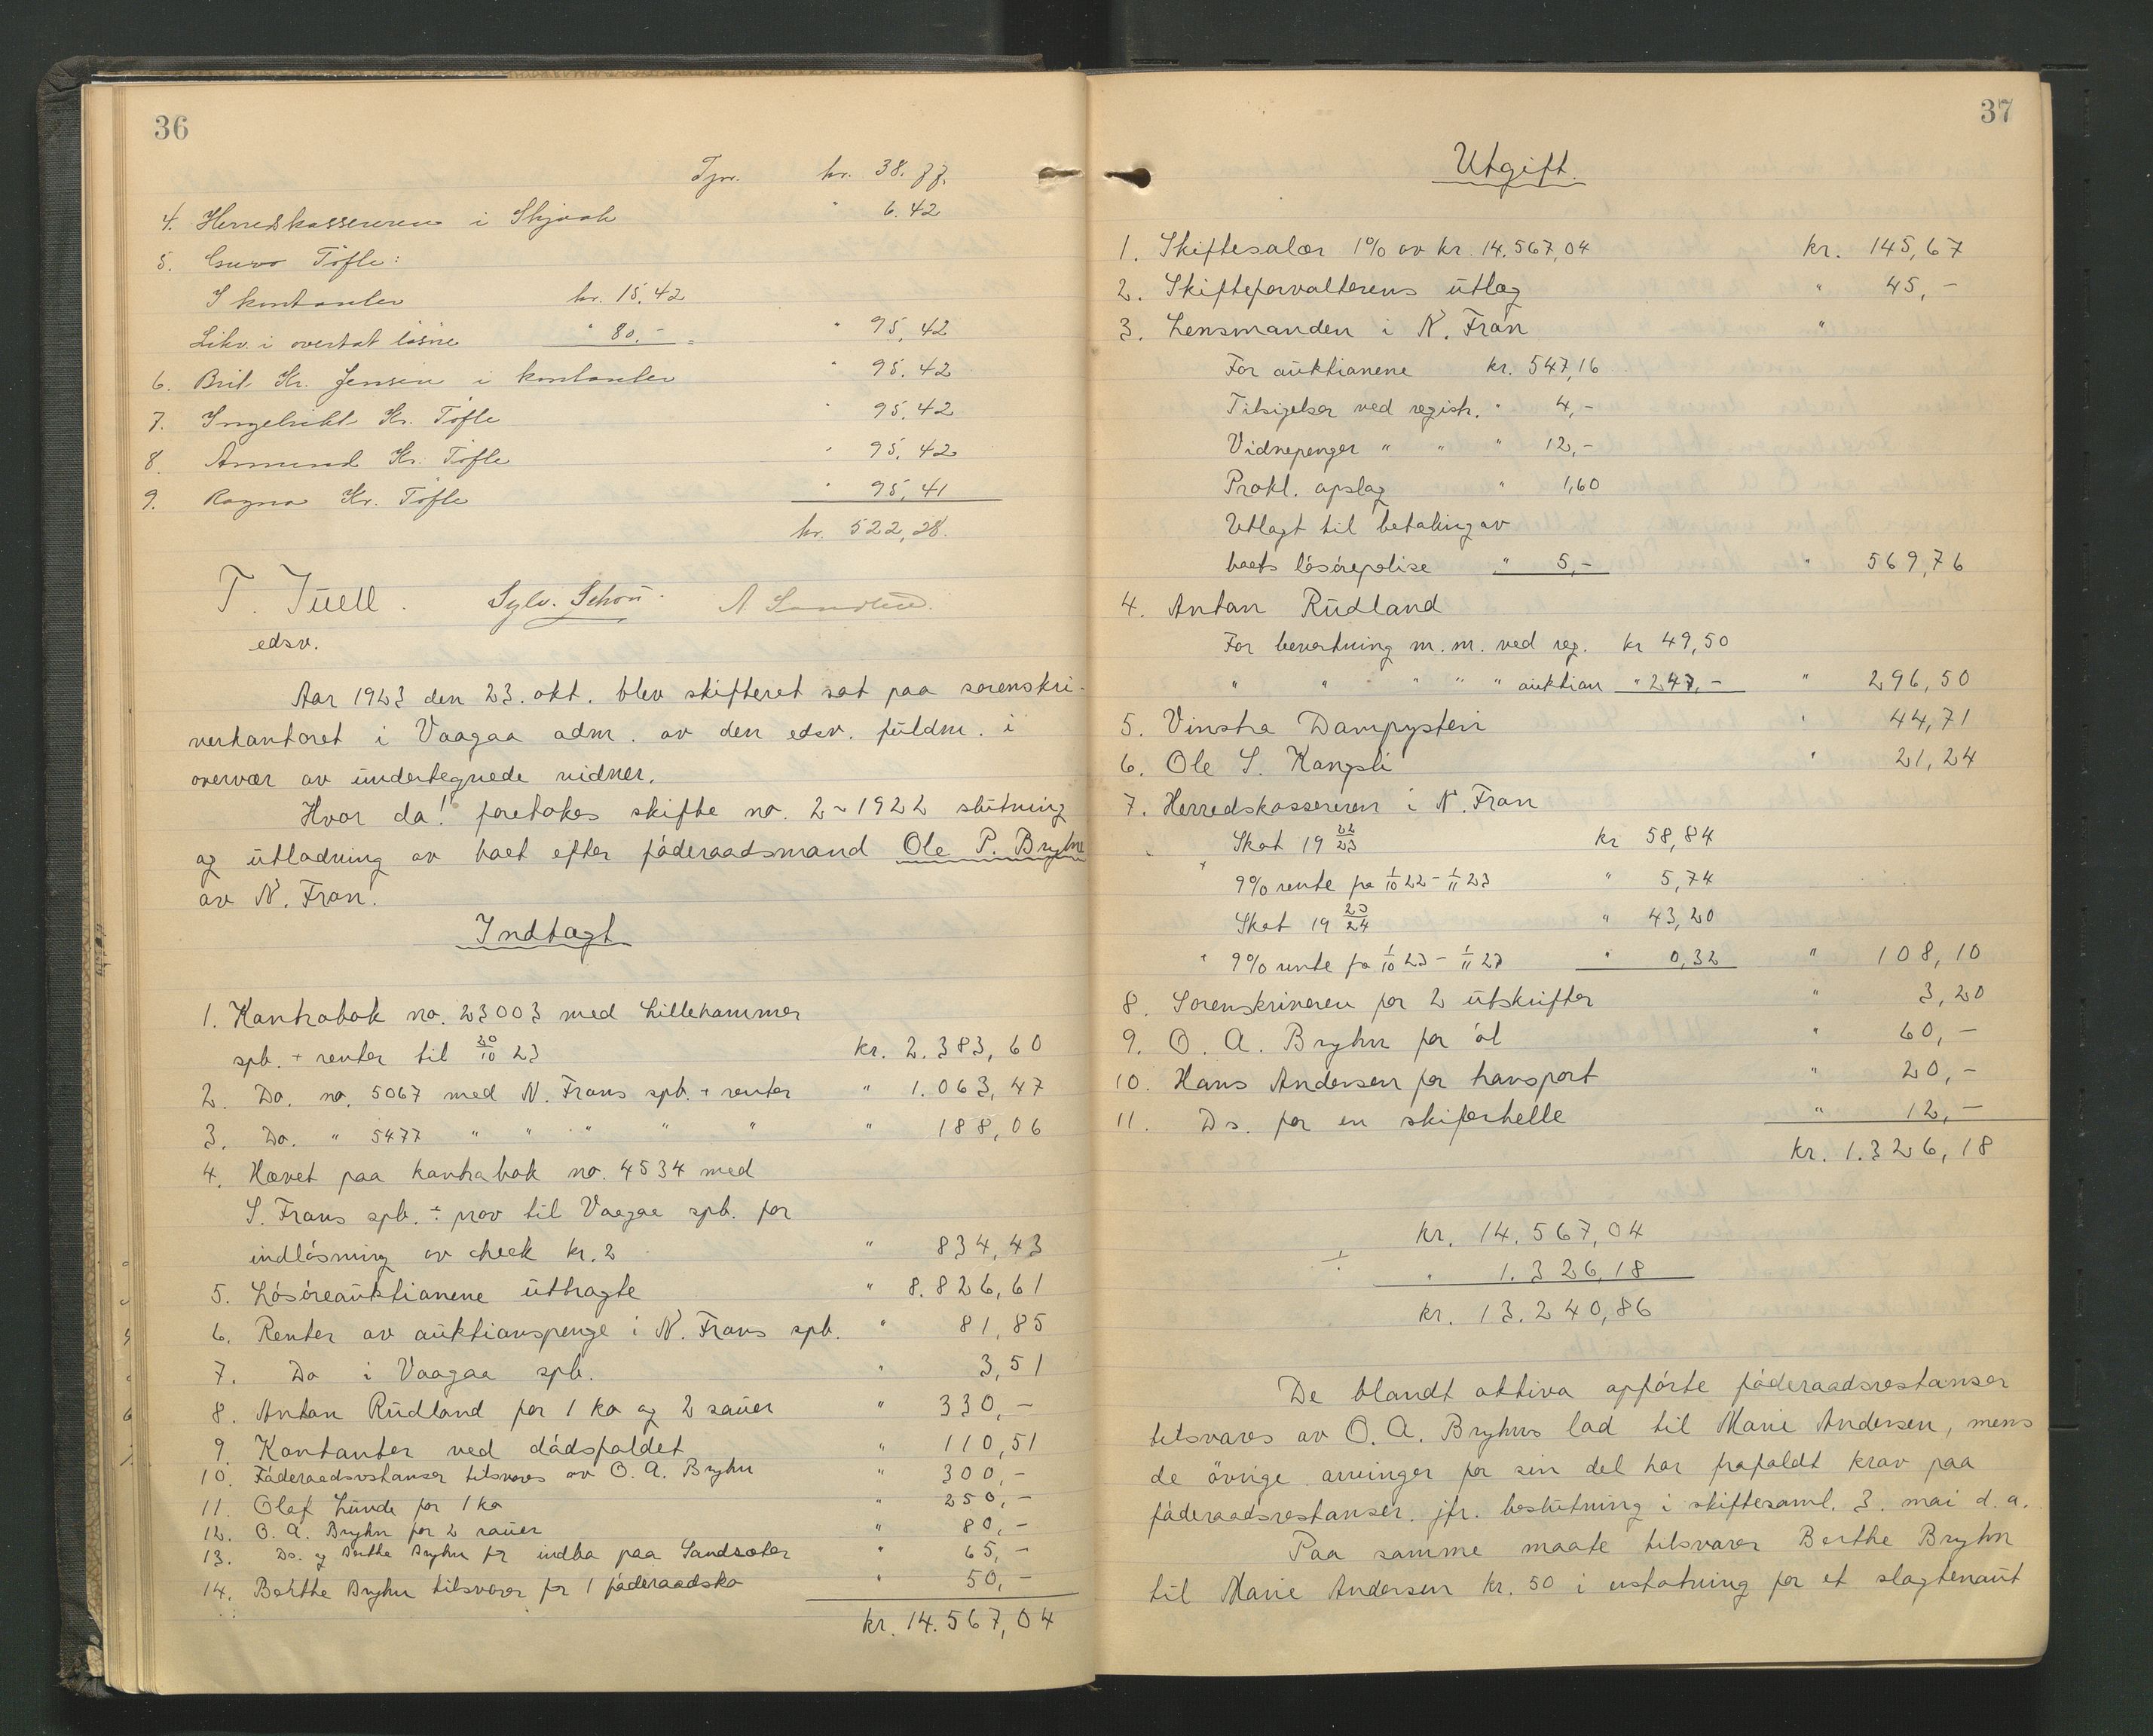 36
Tpr. kr. 38.77.
4. Herredskassereren i Skjaak " 6.42
5. Guro Töfte:
I kontanter kr. 15.42
Likv. i overtat lösöre " 80.- = " 95,42
6. Brit Kr. Jensen i kontanter " 95.42
7. Ingebrikt Kr. Töfte " 95.42
8. Amund Kr. Töfte " 95.42
9. Ragna Kr. Töfte " 95,41
kr. 522,28.
T. Juell. Sylv. Schou. A
edsv.
Aar 1923 den 23. okt. blev skifteret sat paa sorenskri-
verkontoret i Vaagaa adm. av den edsv. fuldm. i
overvær av undertegnede vidner.
Hvor da! foretokes skifte no. 2 ~ 1922 slutning
og utlodning av boet efter föderaadsmand Ole P. Bryhn
av N. Fron.
Indtægt
1. Kontrabok no. 23003 med Lillehammer
spb. + renter til 30/10 23 kr. 2.383,60
2. Do. no. 5067 med N. Frons spb. + renter " 1.063,47
3. Do. " 5477 " " " " " " 188,06
4. Hævet paa kontrabok no. 4534 med
S. Frons spb. ÷ prov til Vaagaa spb. for
indlösning av check kr. 2 " 834,43
5. Lösöreauktionene utbragte " 8.826,61
6. Renter av auktionspenge i N. Frons spb. " 81,85
7. Do i Vaagaa spb. " 3,51
8. Anton Rudland for 1 ko og 2 sauer " 330,-
9. Kontanter ved dödsfaldet " 110,51
10. Föderaadsrestanser tilsvares av O. A. Bryhn " 300,-
11. Olaf Lunde for 1 ko " 250,-
12. O. A. Bryhn for 2 sauer " 80,-
13. Do. og Berthe Bryhn for indbo paa Sandsæter " 65,-
14. Berthe Bryhn tilsvarer for 1 föderaadsko " 50,-
kr. 14.567,04
37
Utgift.
1. Skiftesalær 1% av kr. 14.567,04 kr. 145,67
2. Skifteforvalterens utlæg " 45,-
3. Lensmanden i N. Fron "
For auktionene kr. 547,16
Tilsigelser ved registr. " 4,-
Vidnepenger " " " 12,-
Prokl. opslag " 1,60
Utlagt til betaling av
boets lösörepolise " 5,- " 569,76
4. Anton Rudland
For bevertning m.m. ved reg. kr 49,50
" " " " " auktion " 247,- " 296,50
5. Vinstra Dampysteri " 44,71
6. Ole S. Kongsli " 21,24
7. Herredskassereren i N. Fron
Skat 19 22/23 kr 58,84
+ 9% rente fra 1/10 22 - 1/11 23 " 5,74
Skat 19 23/24 " 43,20
+ 9% rente fra 1/10 23 - 1/11 23 " 0,32 " 108,10
8. Sorenskriveren for 2 utskrifter " 3,20
9. O. A. Bryhn for öl " 60,-
10. Hans Andersen for transport " 20,-
11. Ds. for en skiferhelle " 12,-
kr. 1.326,18
kr. 14.567,04
÷ " 1.326,18
kr. 13.240,86
De blandt aktiva opförte föderaadsrestanser
tilsvares av O. A. Bryhns lod til Marie Andersen, mens
de övrige arvinger for sin del har frafaldt krav paa
föderaadsrestanser. jfr. beslutning i skiftesaml. 3. mai d. a.
Paa samme maate tilsvarer Berthe Bryhn
til Marie Andersen kr. 50 i erstatning for et slagtenaut